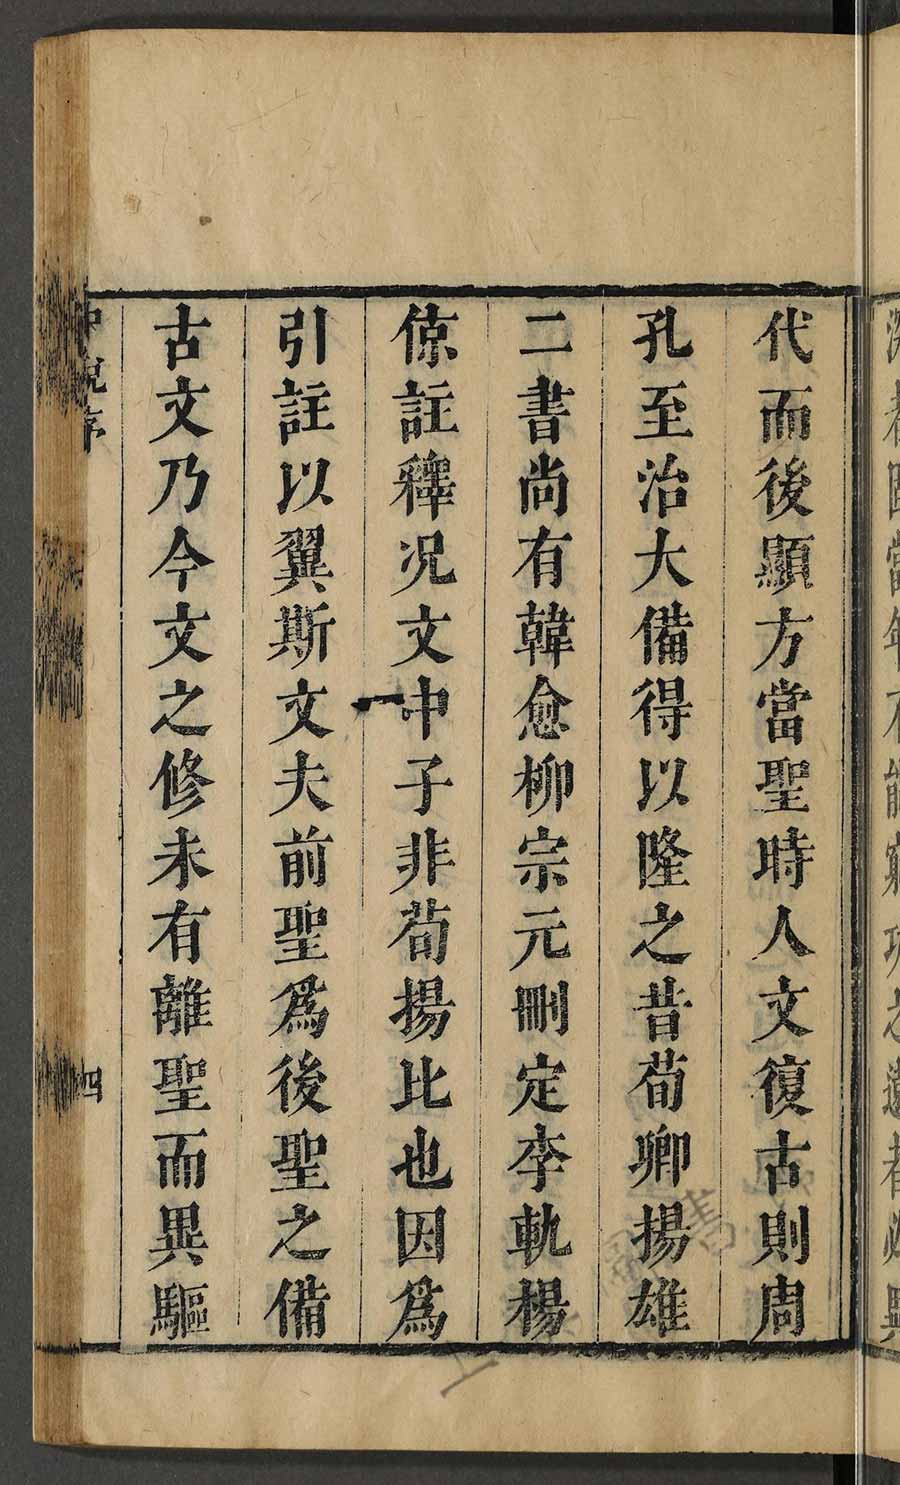 代而後顯方當聖時人文復古則周
孔至治大備得以隆之昔荀卿揚雄
二書尚有韓愈柳宗元刪定李軌楊
倞註釋况文中子非荀揚比也因爲
引註以翼斯文夫前聖爲後聖之備
古文乃今文之修未有離聖而異驅
中說序
四